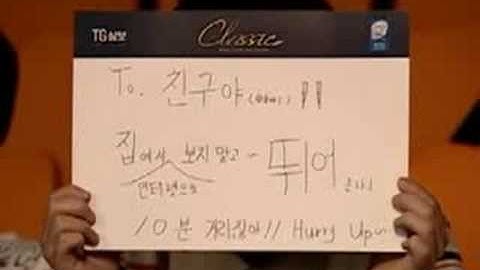 TG삼보 Classic
To. 친구야 !!
집에서 보지 말고 ~ 뛰어
인터넷으로
10분 거리잖아!! Hurry Up